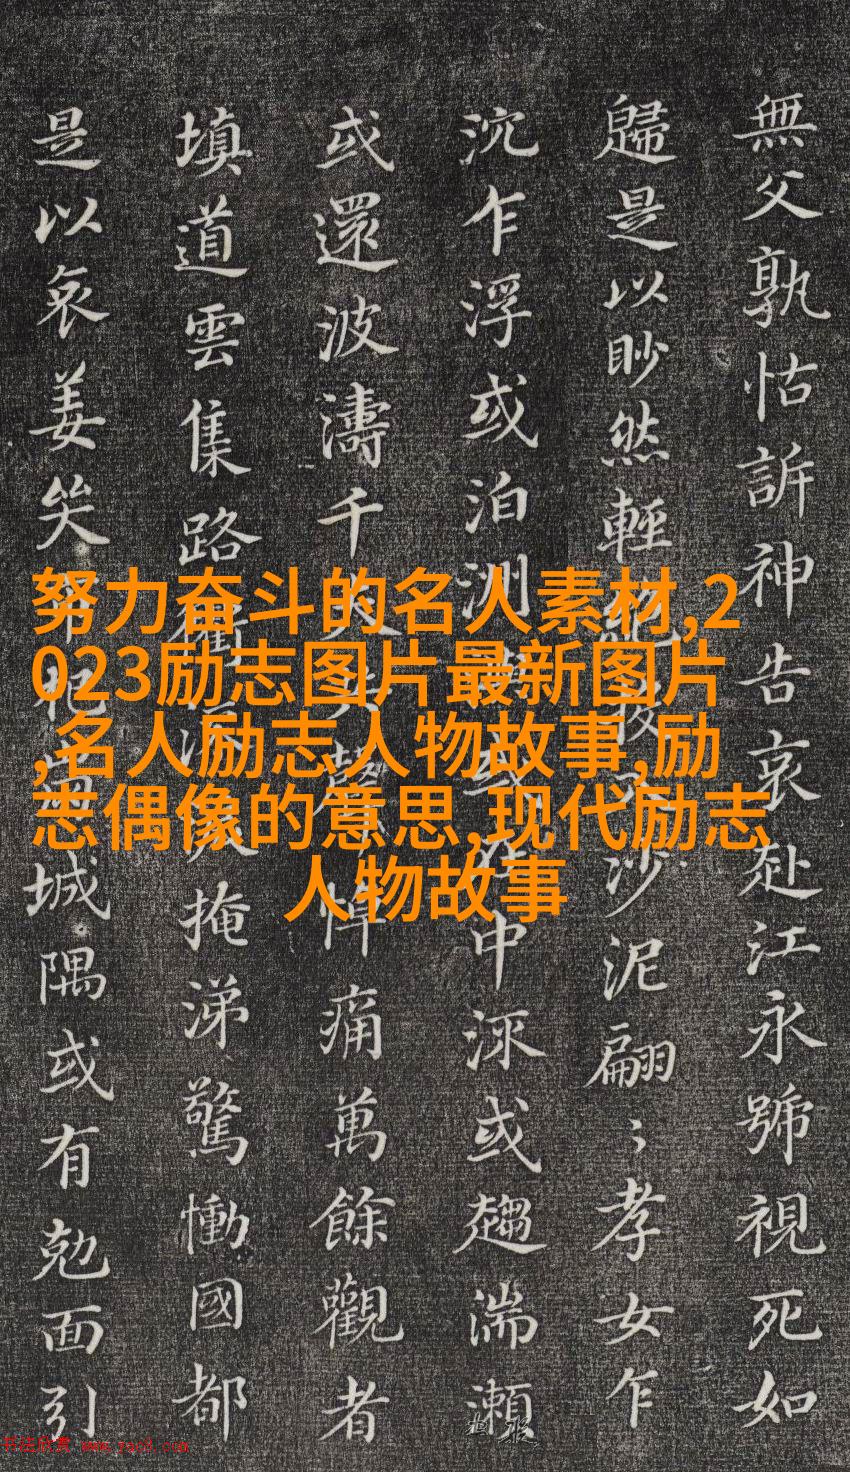 無父孰怙訴神告哀赴江永號視死如
歸是以眇然輕沙泥翩〻孝女乍
沉乍浮或泊洲或中流或趨湍瀨
或還波濤千夫聲悼痛萬餘觀者
填道雲集路衢流掩涕驚慟國都
是以哀姜哭市杞崩城隅或有勊面引
努力奋斗的名人素材,2
023励志图片最新图片
,名人励志人物故事,励
志偶像的意思,现代励志
人物故事
书法欣赏 www.yac8.com